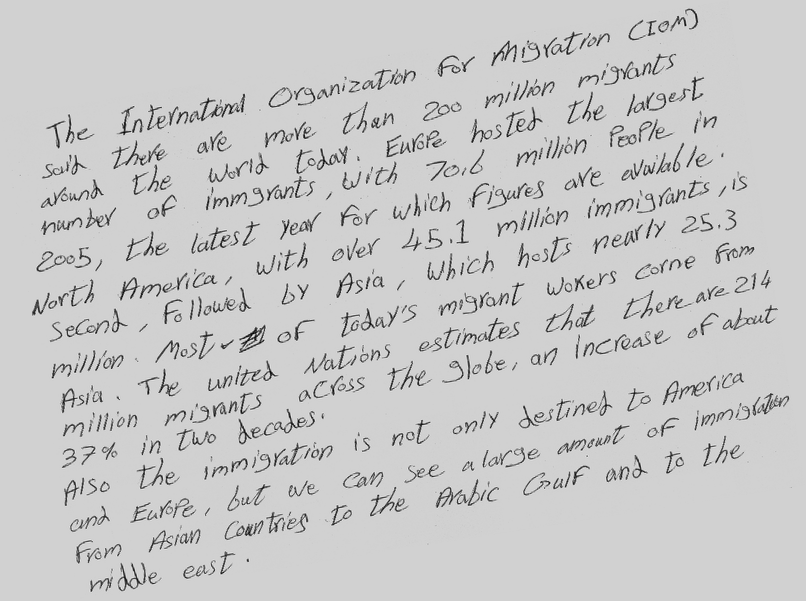 The International Organization For Migration (IOM)
said there are more than 200 million migrants
around the world today. Europe hosted the largest
number of immigrants, with 70.6 million People in
2005, the latest year for which figures are available.
North America, with over 45.1 million immigrants, is
second, Followed by Asia, which hosts nearly 25.3
million. Most of today's migrant wokers come from
Asia. The united Nations estimates that there are 214
million migrants across the globe, an increase of about
37% in two decades.
Also the immigration is not only destined to America
and Europe, but we can see a large amount of immigration
From Asian Countries to the Arabic Gulf and to the
middle east.